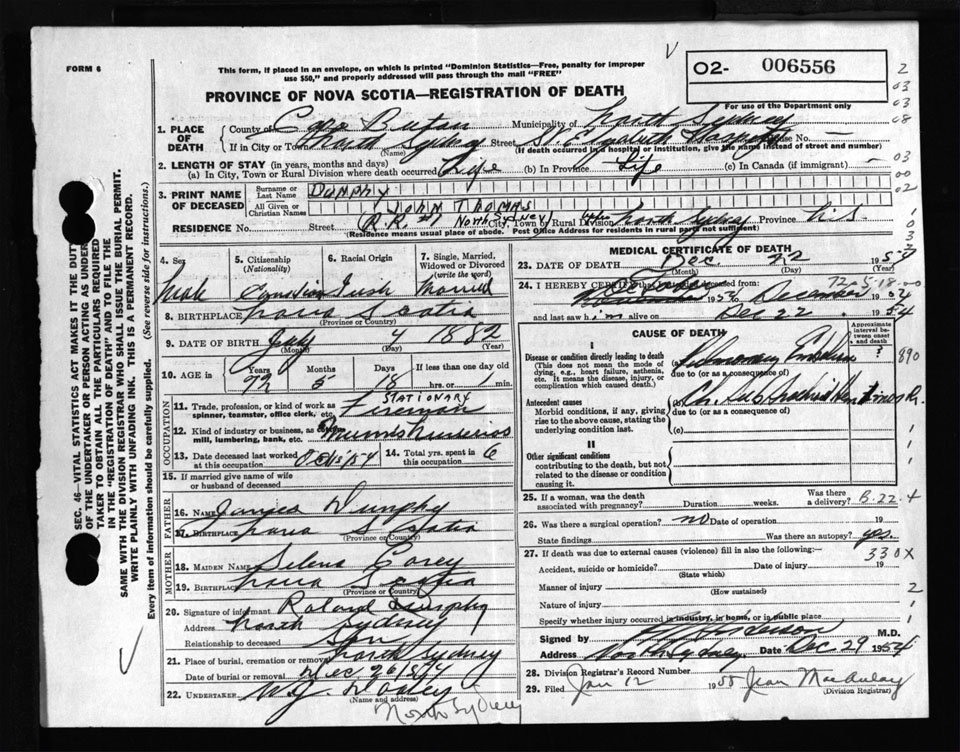 FORM 6
This form, if placed in an envelope, on which is printed "Dominion Statistics—Free, penalty for improper
use $50," and properly addressed will pass through the mail "FREE"
O2- 006556
PROVINCE OF NOVA SCOTIA—REGISTRATION OF DEATH
For use of the Department only
1. PLACE OF DEATH
County of Cape Breton Municipality of North Sydney
If in City or Town North Sydney Street St. Elizabeth Hospital House No. —
(Name) (If death occurred in a hospital or institution, give the name instead of street and number)
2. LENGTH OF STAY (in years, months and days)
(a) In City, Town or Rural Division where death occurred Life (b) In Province Life (c) In Canada (if immigrant) —
3. PRINT NAME OF DECEASED
Surname or Last Name DUNPHY
All Given or Christian Names JOHN THOMAS
RESIDENCE No. Street R.R. #1 North Sydney Town or Rural Division North Sydney Province N.S.
(Residence means usual place of abode. Post Office Address for residents in rural parts not sufficient)
4. Sex Male
5. Citizenship (Nationality) Canadian
6. Racial Origin Irish
7. Single, Married, Widowed or Divorced (write the word) Married
8. BIRTHPLACE Nova Scotia
(Province or Country)
9. DATE OF BIRTH July 4 1882
(Month) (Day) (Year)
10. AGE in Years 72 Months 5 Days 18 If less than one day old
hrs. or min.
OCCUPATION
11. Trade, profession, or kind of work as spinner, teamster, office clerk, etc. STATIONARY Fireman
12. Kind of industry or business, as cotton mill, lumbering, bank, etc.
13. Date deceased last worked at this occupation Oct/54
14. Total yrs. spent in this occupation 6
15. If married give name of wife or husband of deceased
FATHER
16. NAME James Dunphy
17. BIRTHPLACE Nova Scotia
(Province or Country)
MOTHER
18. MAIDEN NAME Selena Corey
19. BIRTHPLACE Nova Scotia
(Province or Country)
20. Signature of informant Roland Dunphy
Address North Sydney
Relationship to deceased Son
21. Place of burial, cremation or removal North Sydney
Date of burial or removal Dec 26/54
22. UNDERTAKER W.J. Dooley
(Name and address)
North Sydney
MEDICAL CERTIFICATE OF DEATH
23. DATE OF DEATH Dec. 22 195
(Month) (Day) (Year)
24. I HEREBY CERTIFY that I attended deceased from:
November 1954 to December 1954
and last saw him alive on Dec 22 1954
CAUSE OF DEATH
Approximate interval between onset and death
I
Disease or condition directly leading to death
(This does not mean the mode of dying, e.g., heart failure, asthenia, etc. It means the disease, injury, or complication which caused death.)
(a) Pulmonary Embolism ? 890
due to (or as a consequence of)
Antecedent causes
Morbid conditions, if any, giving rise to the above cause, stating the underlying condition last.
(b)
due to (or as a consequence of)
(c)
II
Other significant conditions contributing to the death, but not related to the disease or condition causing it.
25. If a woman, was the death associated with pregnancy? Duration weeks. Was there a delivery? B.22.4
26. Was there a surgical operation? no Date of operation 19
State findings Was there an autopsy? yes
27. If death was due to external causes (violence) fill in also the following:— 330X
Accident, suicide or homicide? Date of injury 19
(State which)
Manner of injury
(How sustained)
Nature of injury
Specify whether injury occurred in industry, in home, or in public place
Signed by M.D.
Address North Sydney. Date Dec 29 1954
28. Division Registrar's Record Number
29. Filed Jan 12 1955 Jean MacAulay
(Division Registrar)
SEC. 46—VITAL STATISTICS ACT MAKES IT THE DUTY
OF THE UNDERTAKER OR PERSON ACTING AS UNDERTAKER TO OBTAIN ALL THE PARTICULARS REQUIRED
IN THE "REGISTRATION OF DEATH" AND TO FILE THE
SAME WITH THE DIVISION REGISTRAR WHO SHALL ISSUE THE BURIAL PERMIT.
WRITE PLAINLY WITH UNFADING INK. THIS IS A PERMANENT RECORD.
Every item of information should be carefully supplied. (See reverse side for instructions.)